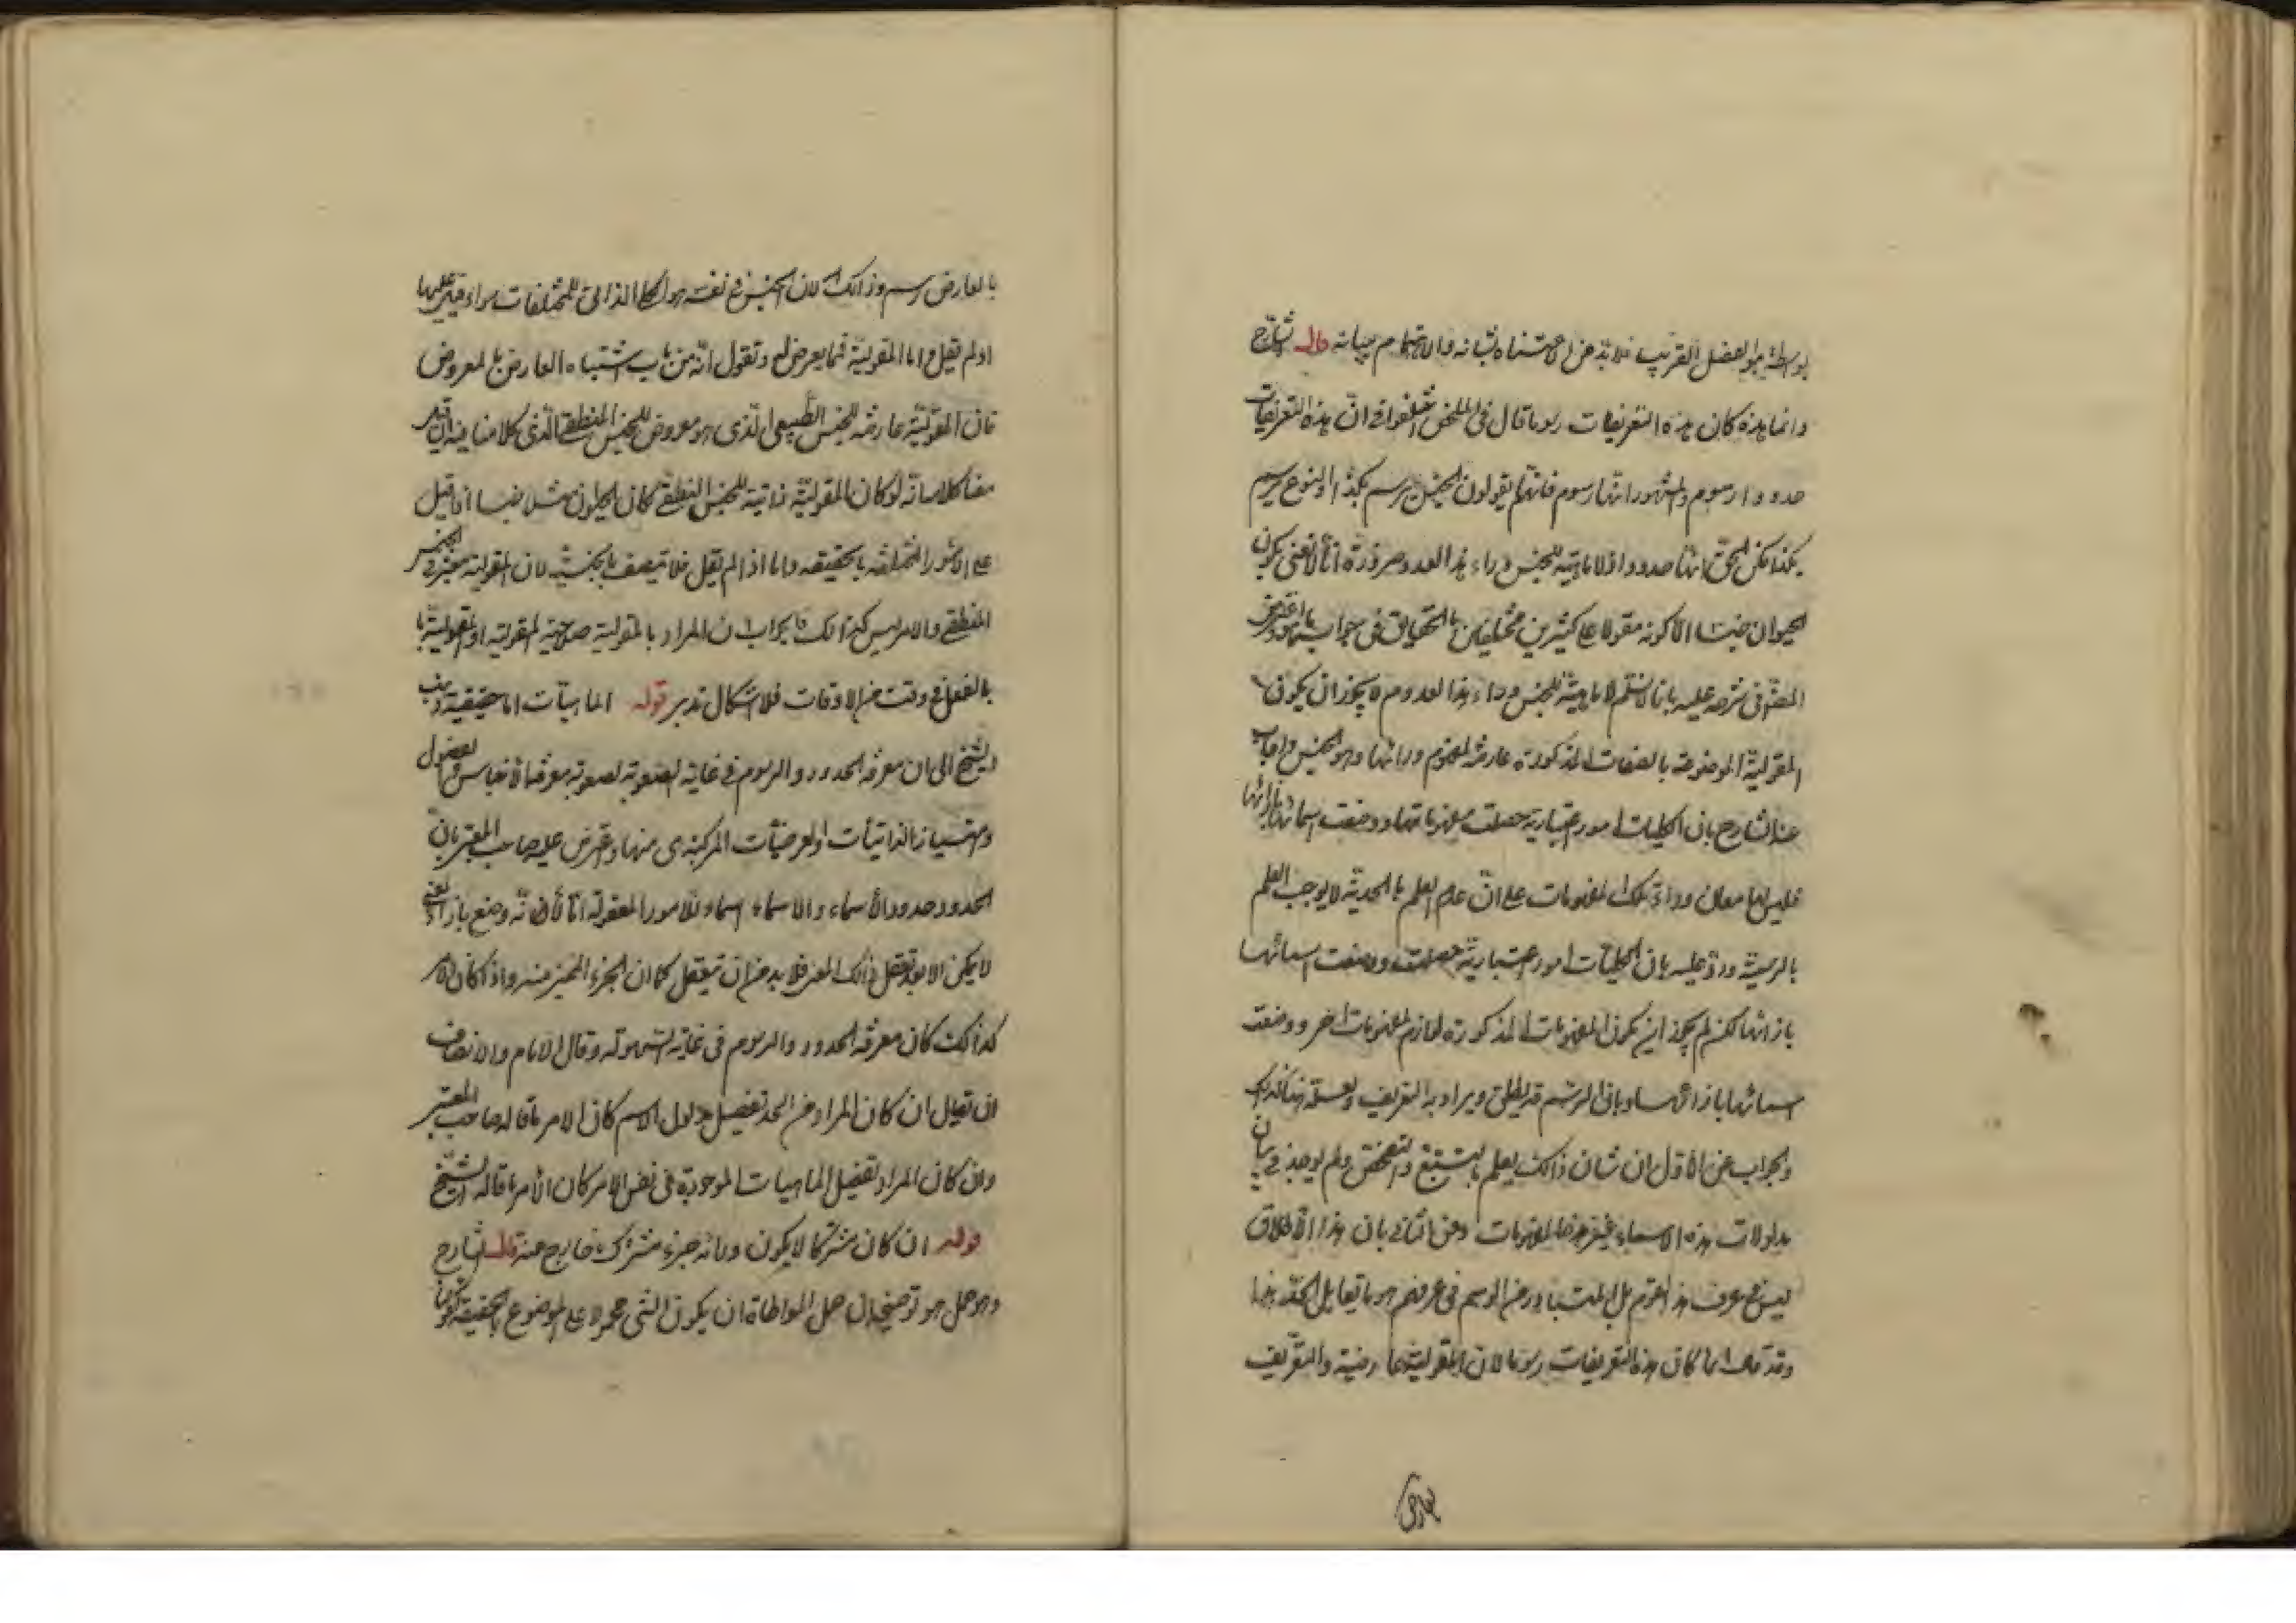 بواسطة هو الفصل القريب فلا بد من الاعتناء بشانه والاهتمام ببيانه قال الشارح
وانما هذه كان هذه التعريفات رسوما قال فى الملخص اختلفوا فى ان هذه التعريفات
حدود او رسوم والمشهور انها رسوم فانهم يقولون الجنس يرسم بكذا والنوع يرسم
بكذا لكن الحق انها حدود اذ لا ماهية للجنس وراء هذا القدر ضرورة انا لا نعنى بكون
الحيوان جنسا الا كونه مقولا على كثيرين مختلفين بالحقايق فى جواب ما هو واعترض
المص فى شرحه عليه بانا لا نسلم لا ماهية للجنس وراء هذا القدر لم لا يجوز ان يكون
المقولية الموصوفة بالصفات المذكورة عارضة لمفهوم ورائها وهو الجنس واجاب
عنه الشارح بان الكليات امور اعتبارية حصلت مفهوماتها ووضعت اسمائها بازائها
فليس لها معان وراء تلك المفهومات على ان عدم العلم بالحدية لا يوجب العلم
بالرسمية ورد عليه بان الكليات امور اعتبارية حصلت ووضعت اسمائها
بازائها لكن لم لا يجوز ان يكون المفهومات المذكورة لوازم لمفهومات اخر ووضعت
اسمائها بازائها وبان الرسم قد يطلق ويراد به التعريف ولعله هنا كذلك
والجواب عن الاول ان شان ذالك يعلم بالتتبع والتفحص ولم يوجد فى بيان
مدلولات هذه الاسماء غير هذه المفهومات وعن الثانى بان هذا الاطلاق
ليس فى عرف هذا القوم بل المتبادر من الرسم فى عرفهم هو ما يقابل الحد هذا
وقد قال انما كان هذه التعريفات رسوما لان المقولية عارضية والتعريف
بالعارض رسم وذالك لان الجنس فى نفسه هو الكلى الذاتى للمختلفات سواء قيل عليها
او لم تقل واما المقولية فمما يعرض له وتقول انه من باب اشتباه العارض بالمعروض
فان المقولية عارضة للجنس الطبيعى الذى هو معروض للجنس المنطقى الذى كلامنا فيه ان قيل
لو كان المقولية ذاتية للجنس المنطقى كان الحيوان مثلا جنسا اذا قيل
على الامور المختلفة بالحقيقة واما اذا لم يقل فلا يتصف بالجنسية لان المقولية معتبر فى الجنس
المنطقى والامر ليس كذالك فالجواب ان المراد بالمقولية صلاحية المقولية او المقولية
بالفعل فى وقت من الاوقات فلا اشكال تدبر قوله الماهيات اما حقيقية ذهب
الشيخ الى ان معرفة الحدود والرسوم فى غاية الصعوبة لصعوبة معرفة الاجناس والفصول
وامتياز الذاتيات والعرضيات المركبة منها واعترض عليه صاحب المعتبر بان
الحدود حدود الاسماء والاسماء اسماء للامور المعقولة
لا يمكن الا بتعقل ذالك المعنى فلا بد من ان يتعقل كما ان الجزء المميز منه واذا كان الامر
كذالك كان معرفة الحدود والرسوم فى غاية السهولة وقال الامام والانصاف
ان يقال ان كان المراد من الحد تفصيل مدلول الاسم كان الامر ما قاله صاحب المعتبر
وان كان المراد تفصيل الماهيات الموجودة فى نفس الامر كان الامر ما قاله الشيخ
قوله ان كان مشتركا لا يكون ورائه جزء مشترك خارج عنه قال الشارح
وهو حمل هو هو توضيحه ان حمل المواطاة ان يكون الشى محمولا على الموضوع بالحقيقة